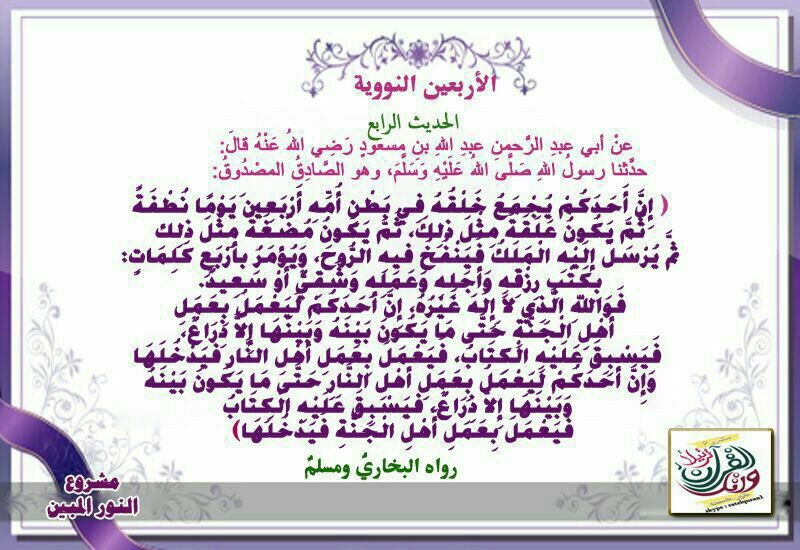 الأربعين النووية
الحديث الرابع
عنْ أبي عبدِ الرَّحمنِ عبدِ اللهِ بنِ مسعودٍ رَضِي اللهُ عَنْهُ قالَ:
حدَّثنا رسولُ اللهِ صَلَّى اللهُ عَلَيْهِ وَسَلَّمَ، وهو الصَّادِقُ المصْدُوقُ:
( إِنَّ أَحَدَكُمْ يُجْمَعُ خَلْقُهُ فِي بَطْنِ أُمِّهِ أَرْبَعِينَ يَوْمًا نُطْفَةً
ثُمَّ يَكُونُ عَلَقَةً مِثْلَ ذَلِكَ، ثُمَّ يَكُونُ مُضْغَةً مِثْلَ ذلِكَ
ثُمَّ يُرْسَلُ إِلَيْهِ الْمَلَكُ فَيَنْفُخُ فيهِ الرُّوحَ، وَيُؤْمَرُ بِأَرْبَعِ كَلِمَاتٍ:
بِكَتْبِ رِزْقِهِ وَأَجَلِهِ وَعَمَلِهِ وَشَقِيٌّ أَوْ سَعِيدٌ.
فَوَاللهِ الَّذِي لاَ إِلهَ غَيْرُهُ، إِنَّ أَحَدَكُمْ لَيَعْمَلُ بِعَمَلِ
أَهْلِ الْجَنَّةِ حَتَّى مَا يَكُونَ بَيْنَهُ وَبَيْنَهَا إِلاَّ ذِرَاعٌ،
فَيَسْبِقَ عَلَيْهِ الْكِتَابُ، فَيَعْمَلُ بِعَمَلِ أَهْلِ النَّارِ فَيَدْخُلَهَا
وَإِنَّ أَحَدَكُمْ لَيَعْمَلُ بِعَمَلِ أَهْلِ النَّارِ حَتَّى مَا يَكُونُ بَيْنَهُ
وَبَيْنَهَا إِلاَّ ذِرَاعٌ، فَيَسْبِقُ عَلَيْهِ الْكِتَابُ
فَيَعْمَلُ بِعَمَلِ أَهْلِ الْجَنَّةِ فَيَدْخُلُهَا)
رواه البخاريُّ ومسلمٌ
مشروع
النور المبين
ورتل القرآن ترتيلا